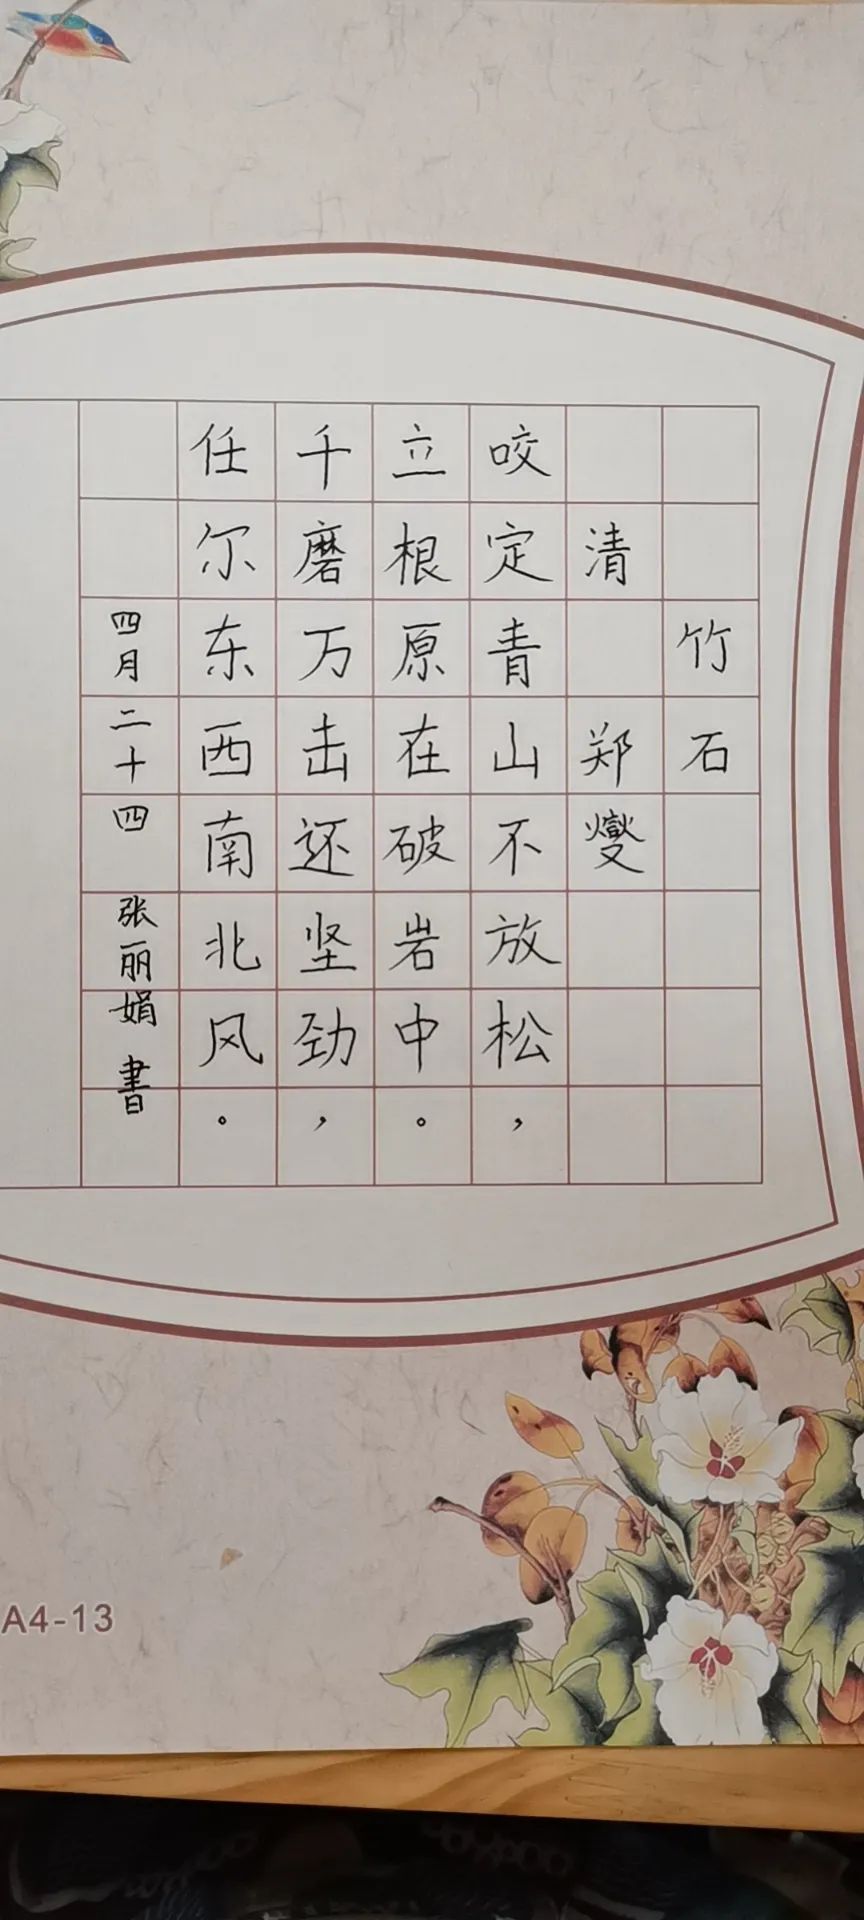 竹石
清 郑燮
咬定青山不放松，
立根原在破岩中。
千磨万击还坚劲，
任尔东西南北风。
四月二十四 张丽娟 書
A4-13